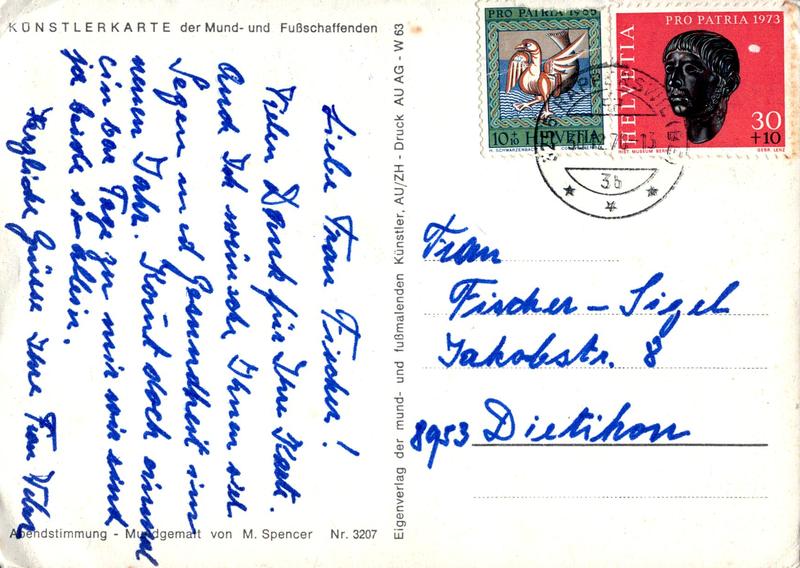 KÜNSTLERKARTE der Mund- und Fußschaffenden
Liebe Frau Fischer!
Vielen Dank für Ihre Karte.
Auch Ich wünsche Ihnen viel
Segen und Gesundheit im
neuen Jahr. Kommt doch einmal
ein par Tage zu mir wir sind
ja beide so allein.
Herzliche Grüsse Ihre Frau
Abendstimmung - Mundgemalt von M. Spencer Nr. 3207
Eigenverlag der mund- und fußmalenden Künstler, AU/ZH - Druck AU AG - W 63
PRO PATRIA 1965
10+10 HELVETIA
PRO PATRIA 1973
HELVETIA
30
+10
HIST MUSEUM BERN
3b
Frau
Fischer-Sigel
Jakobstr. 8
8953 Dietikon